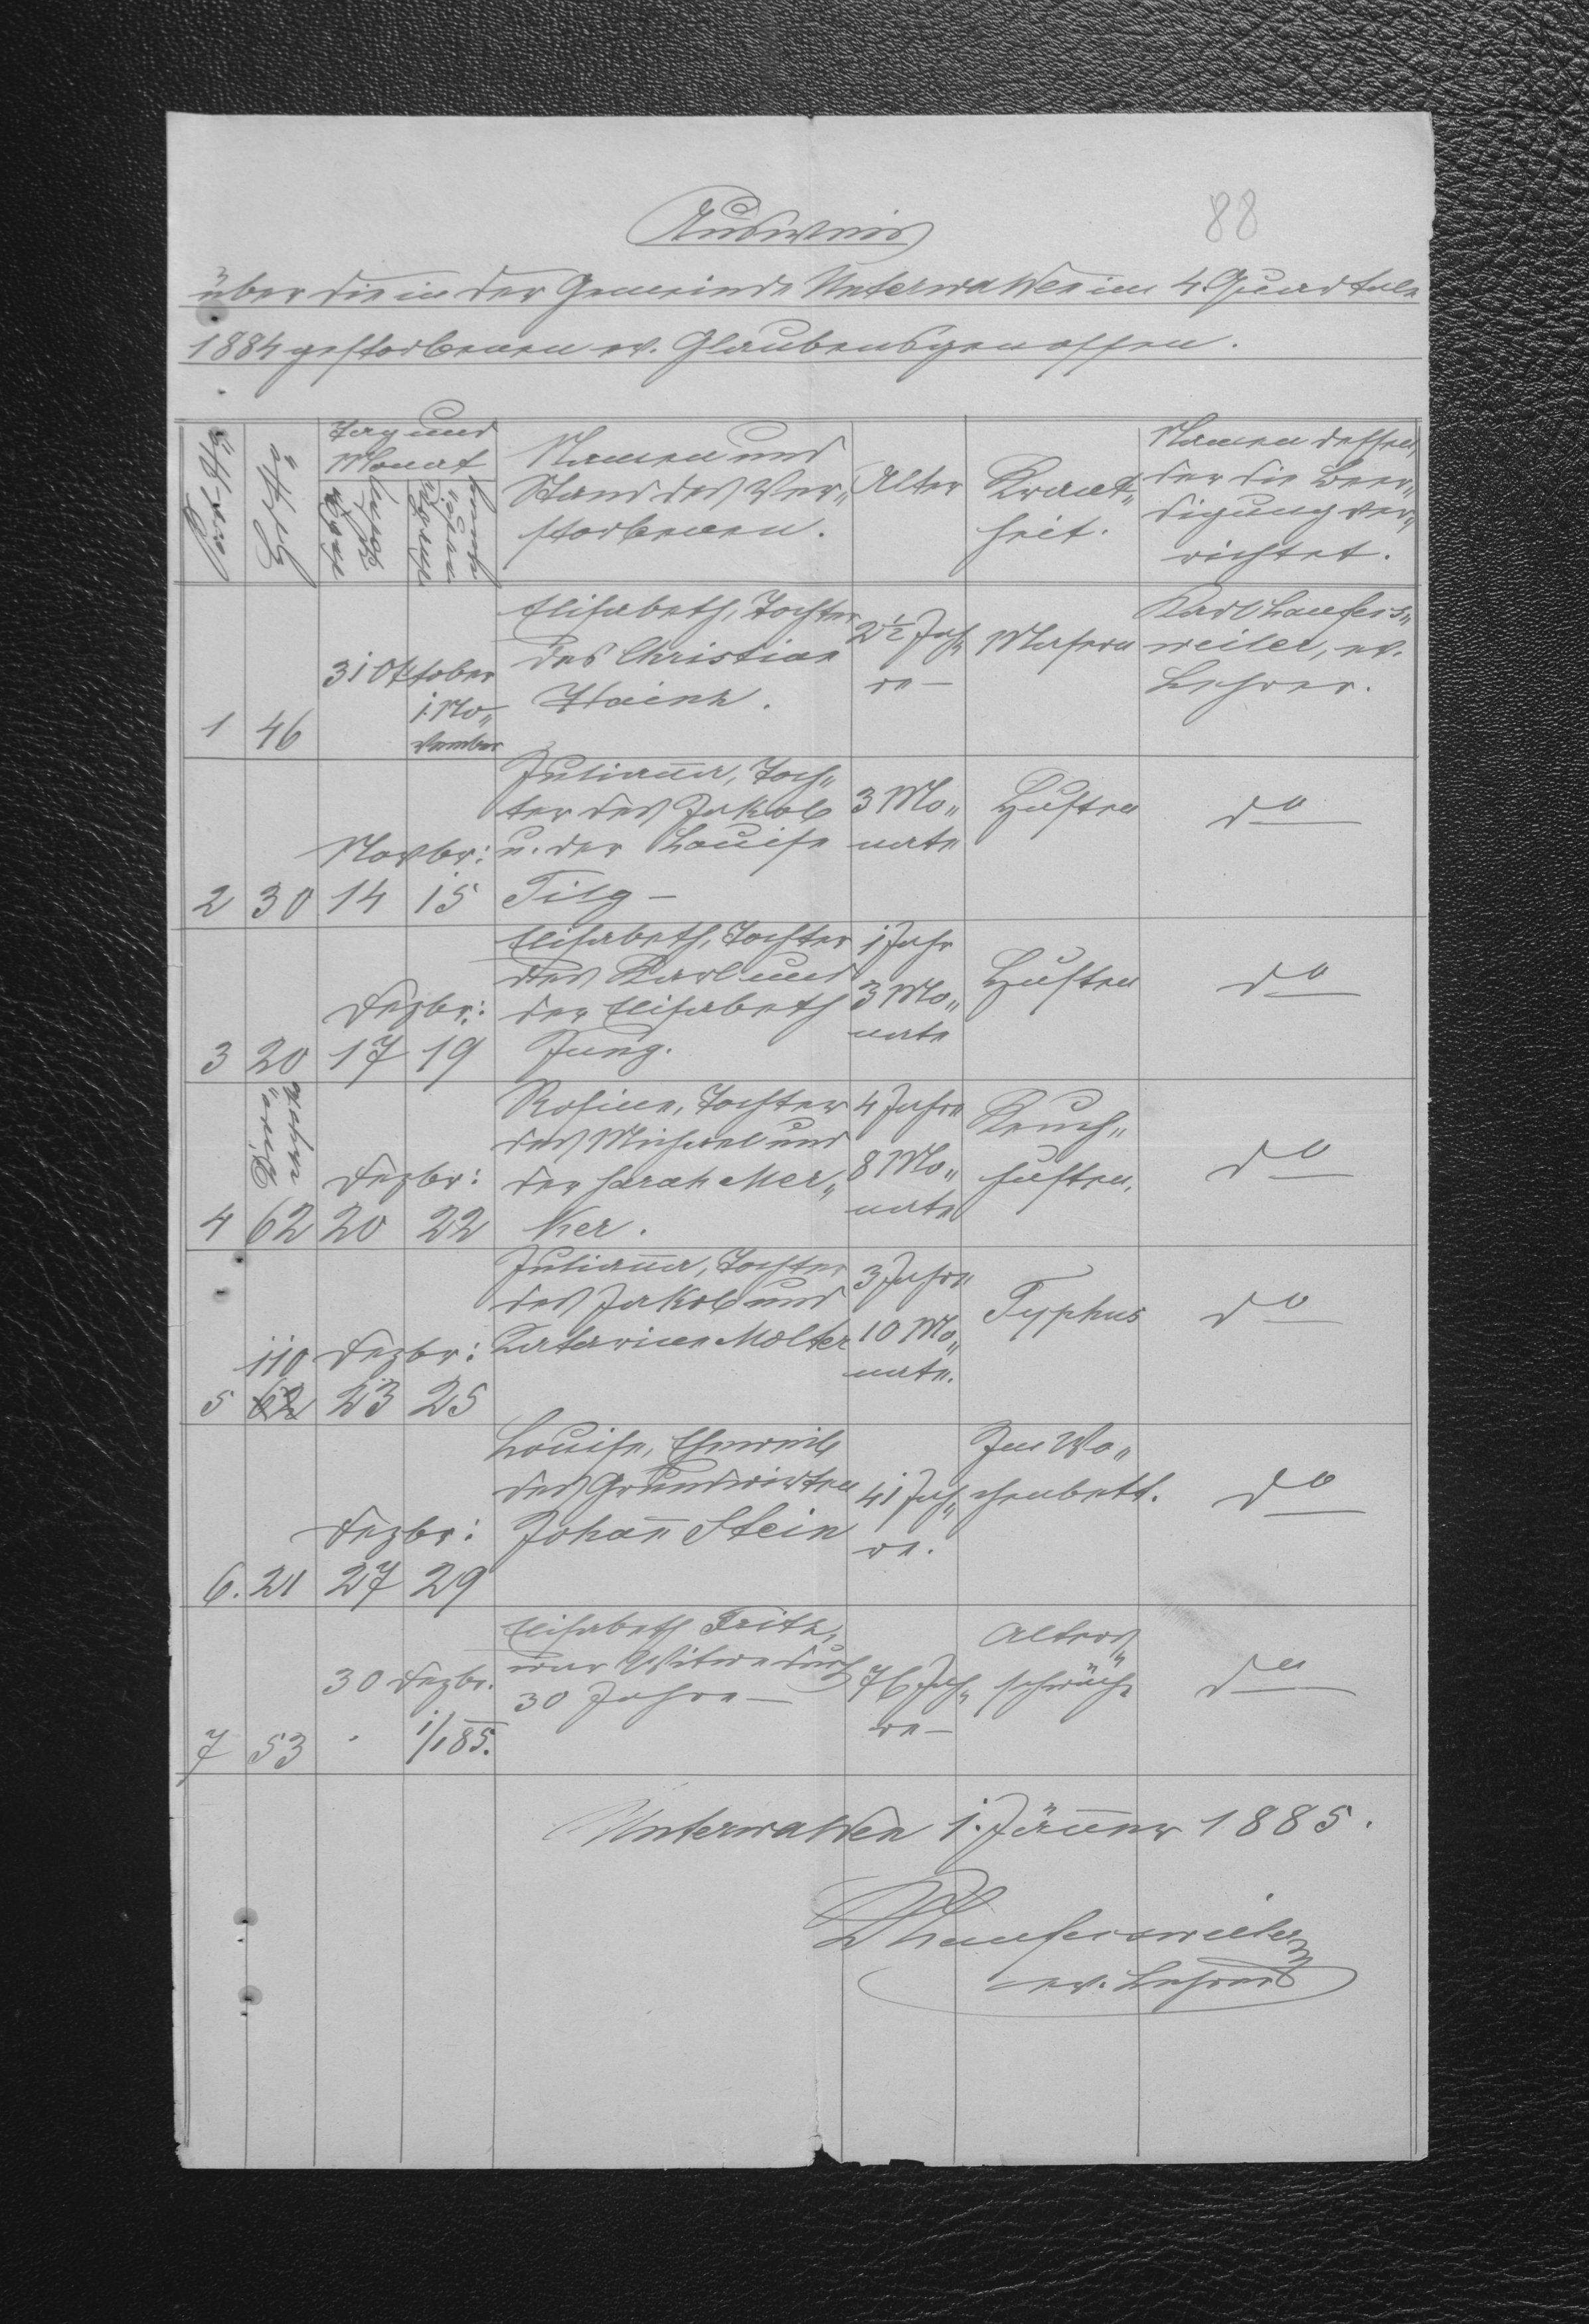 88
Ausweis
über die in der Gemeinde Unterwalden im 4. Quartale
1884 gestorbenen ev. Glaubensgenossen.
Post-№
Hs №
Tag und
Monat
des Todes
Namen und
Stand des Ver„
storbenen.
Alter
Krank„
heit.
Namen dessen,
der die Beer„
digung ver„
richtet.
1 46
31 Oktober
1. No„
vember
Elisabeth, Tochter
des Christian
Hainz.
2½ Jah„
re –
Masern
Karl Laufers„
weiler, ev.
Lehrer.
2 30
Novbr:
14 15
Juliana, Toch„
ter des Jakob
u. der Louise
Tilg –
3 Mo„
nate
Husten
do
3 20
Dezbr:
17 19
Elisabeth, Tochter
des Karl und
der Elisabeth
Jung.
1 Jahr
3 Mo„
nate
Husten
do
4 62
Dezbr:
20 22
Rosina, Tochter
des Michael und
der Sarah Mer„
ker.
4 Jahre
8 Mo„
nate
Keuch„
husten.
do
5 110
62
Dezbr:
23 25
Juliana, Tochter
des Jakob und
Katarina Molter
3 Jahre
10 Mo„
nate.
Typhus
do
6. 21
Dezbr:
27 29
Louise, Eheweib
des Grundwirten
Johan Stein
41 Jah„
re.
Im Wo„
chenbett.
do
7 53
30 Dezbr.
1/1 85.
Elisabeth Fritz,
war Witwe durch
30 Jahre –
76 Jah„
re –
Alters„
schwäche
do
Unterwalden 1. Jänner 1885.
KLaufersweiler
ev. Lehrer